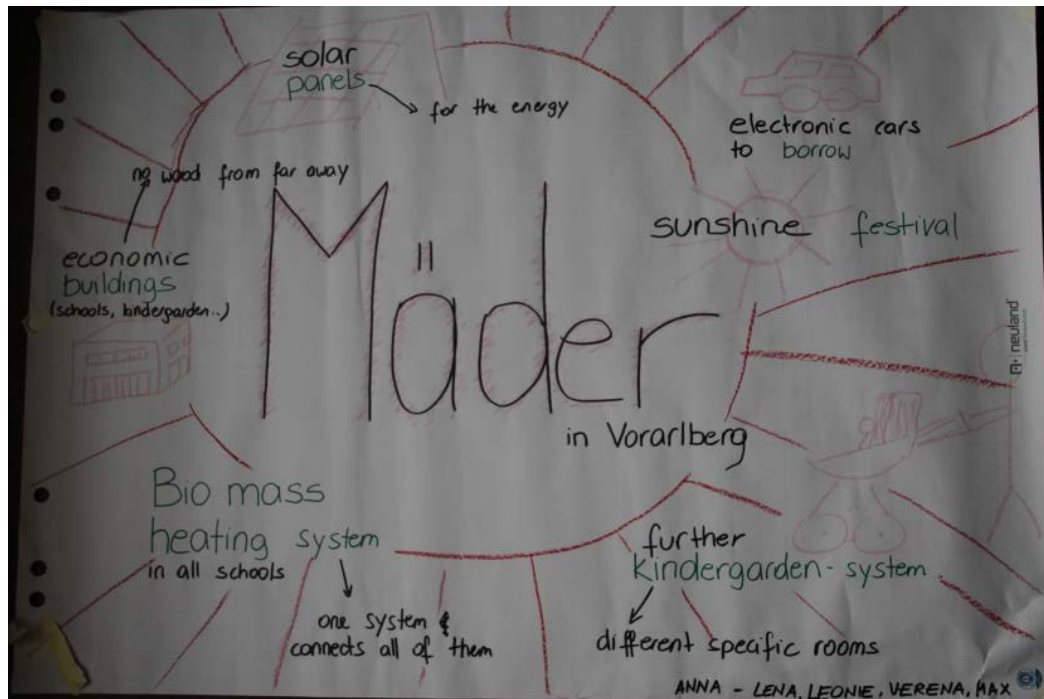 solar
panels
for the energy
electronic cars
to borrow
no wood from far away
economic
buildings
(schools, kindergarden..)
sunshine festival
Mäder
in Vorarlberg
neuland
Bio mass
heating system
in all schools
one system &
connects all of them
further
kindergarden-system
different specific rooms
ANNA - LENA, LEONIE, VERENA, MAX